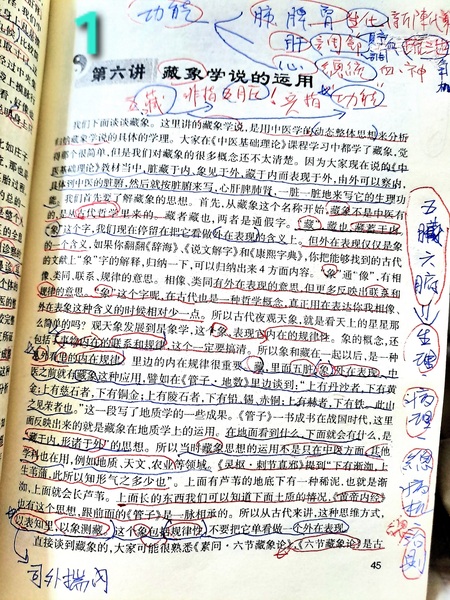 1
功能
肺 脾 胃
肝
心
血、神
第六讲 藏象学说的运用
五藏 非指五脏！实指"功能"
我们下面谈谈藏象。这里讲的藏象学说，是用中医学的动态整体思想来分析
藏象学说的具体的学理。大家在《中医基础理论》课程学习中都学了藏象，觉
得那个很简单，但是我们对藏象的很多概念还不太清楚。因为大家现在说的《中
医基础理论》教材当中，脏藏于内，象见于外，藏于内而表现于外，由外可以察内，
具体到中医的脏腑，然后就按脏腑来写，心肝脾肺肾，一脏一脏地来写它的生理功
能。我们首先要了解藏象的思想。首先，从藏象这个名称开始，藏象不是中医有
的，是从古代哲学里来的。藏者藏也，两者是通假字。"藏"，藏也，藏蓄于内
"象"这个字，我们现在停留在把它看做外在表现的含义上。但外在表现仅仅是象
的一个含义，如果你翻翻《辞海》、《说文解字》和《康熙字典》，你把能够找到的古代
的文献上"象"字的解释，归纳一下，可以归纳出来4方面内容。"象"通"像"，有相
像、类同、联系、规律的意思。相像、类同有外在表现的意思，但更多反映出联系和
规律的意思。"象"这个字呢，在古代也是一种哲学概念，真正用在表达你我相像、
外在表象这种含义的时候相对少一点。所以古代夜观天象，就是看天上的星星那
么简单的吗？观天象发展到星象学，这个象，表现它内在的规律性。象的概念，还
包括了事物内在的联系和规律，这个一定要搞清。所以象和藏在一起以后，是一种
从外看里的内在规律。里边的内在规律很重要，藏，里面五脏，象反在表现。中
医之前就有藏象这种应用，譬如在《管子·地数》里边谈到："上有丹沙者，下有黄
金；上有慈石者，下有铜金；上有陵石者，下有铅、锡、赤铜；上有赭者，下有铁。此山
之见荣者也。"这一段写了地质学的一些成果。《管子》一书成书在战国时代，这里
面反映出来的就是藏象在地质学上的运用。在地面看到什么，下面就会有什么，是
"藏于内，形诸于外"的思想。所以当时藏象思想的运用不是只在中医方面，其他
学科也在用，例如地质、天文、农业等领域。《灵枢·刺节真邪》提到"下有渐洳，上
生苇蒲，此所以知形气之多少也"。上面有芦苇的地底下有一种稀泥，也就是渐
洳，上面就会长芦苇。上面长的东西我们可以知道下面土质的情况，《黄帝内经》
也有这个思想，跟他面的《管子》是一脉相承的。所以从古代来讲，这种思维方式，
以表知里，以象测藏，这个象包括规律性，不要把它单看做一个外在表现。
直接谈到藏象的，大家可能很熟悉《素问·六节藏象论》，《六节藏象论》是古
45
司外揣内
五臟六腑
生理
病理